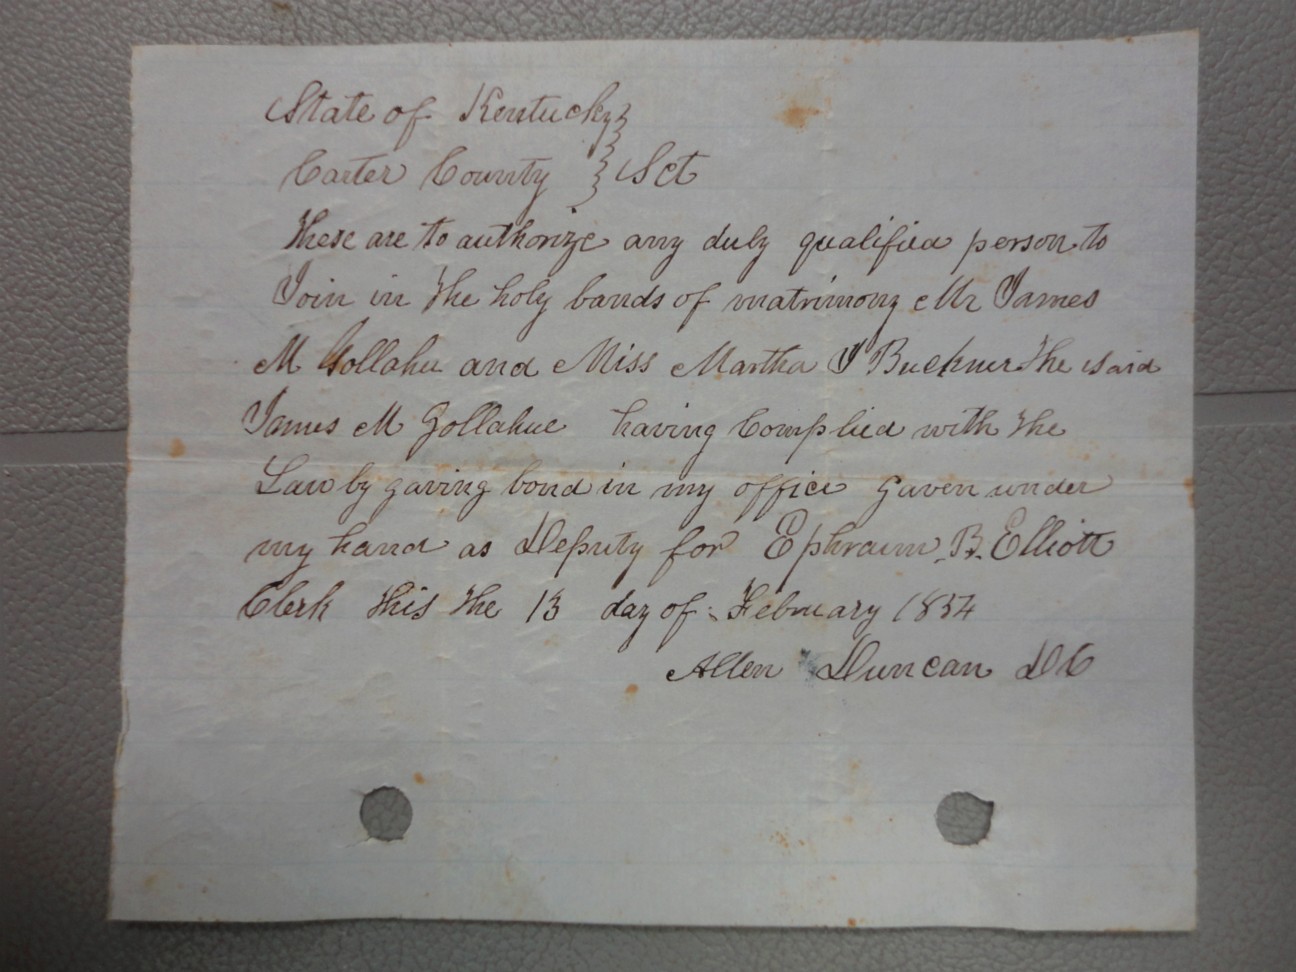 State of Kentucky }
Carter County } Sct
These are to authorize any duly qualified person to
Join in the holy bands of matrimony Mr James
M Gollahu and Miss Martha J Buckner the said
James M Gollahue having Complied with the
Law by gaving bond in my office Gaven under
my hand as Deputy for Ephraim B. Elliott
Clerk this the 13 day of February 1854
Allen Duncan DC